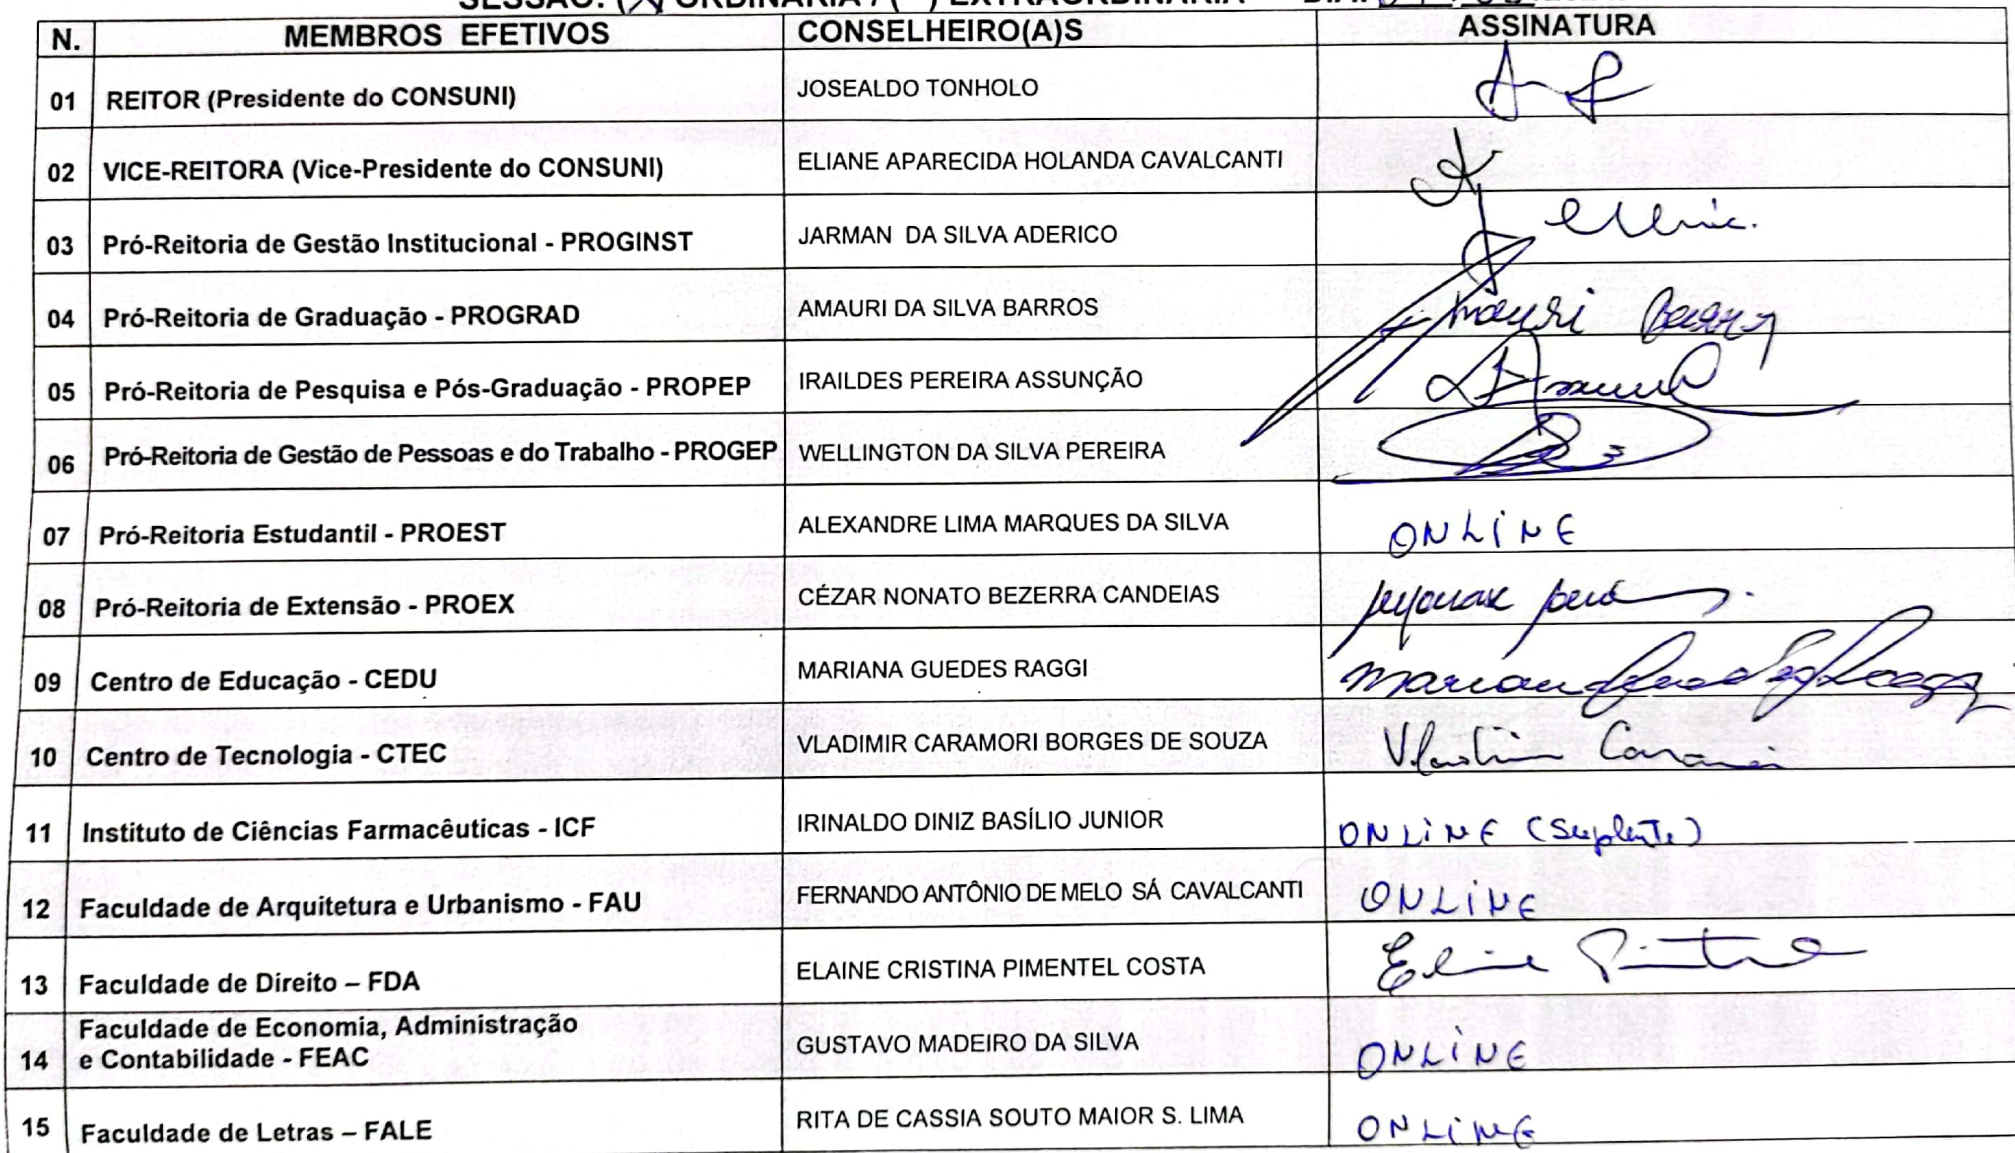 SESSÃO: (X) ORDINÁRIA / ( ) EXTRAORDINÁRIA DIA:
N. MEMBROS EFETIVOS CONSELHEIRO(A)S ASSINATURA
01 REITOR (Presidente do CONSUNI) JOSEALDO TONHOLO
02 VICE-REITORA (Vice-Presidente do CONSUNI) ELIANE APARECIDA HOLANDA CAVALCANTI
03 Pró-Reitoria de Gestão Institucional - PROGINST JARMAN DA SILVA ADERICO
04 Pró-Reitoria de Graduação - PROGRAD AMAURI DA SILVA BARROS Amauri Barros
05 Pró-Reitoria de Pesquisa e Pós-Graduação - PROPEP IRAILDES PEREIRA ASSUNÇÃO
06 Pró-Reitoria de Gestão de Pessoas e do Trabalho - PROGEP WELLINGTON DA SILVA PEREIRA
07 Pró-Reitoria Estudantil - PROEST ALEXANDRE LIMA MARQUES DA SILVA ONLINE
08 Pró-Reitoria de Extensão - PROEX CÉZAR NONATO BEZERRA CANDEIAS
09 Centro de Educação - CEDU MARIANA GUEDES RAGGI Mariana Guedes Raggi
10 Centro de Tecnologia - CTEC VLADIMIR CARAMORI BORGES DE SOUZA Vladimir Caramori
11 Instituto de Ciências Farmacêuticas - ICF IRINALDO DINIZ BASÍLIO JUNIOR ONLINE (Suplente)
12 Faculdade de Arquitetura e Urbanismo - FAU FERNANDO ANTÔNIO DE MELO SÁ CAVALCANTI ONLINE
13 Faculdade de Direito – FDA ELAINE CRISTINA PIMENTEL COSTA Elaine Pimentel
Faculdade de Economia, Administração
14 e Contabilidade - FEAC GUSTAVO MADEIRO DA SILVA ONLINE
15 Faculdade de Letras – FALE RITA DE CASSIA SOUTO MAIOR S. LIMA ONLINE